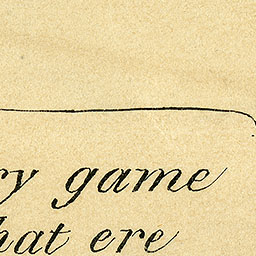 ry game
hat ere